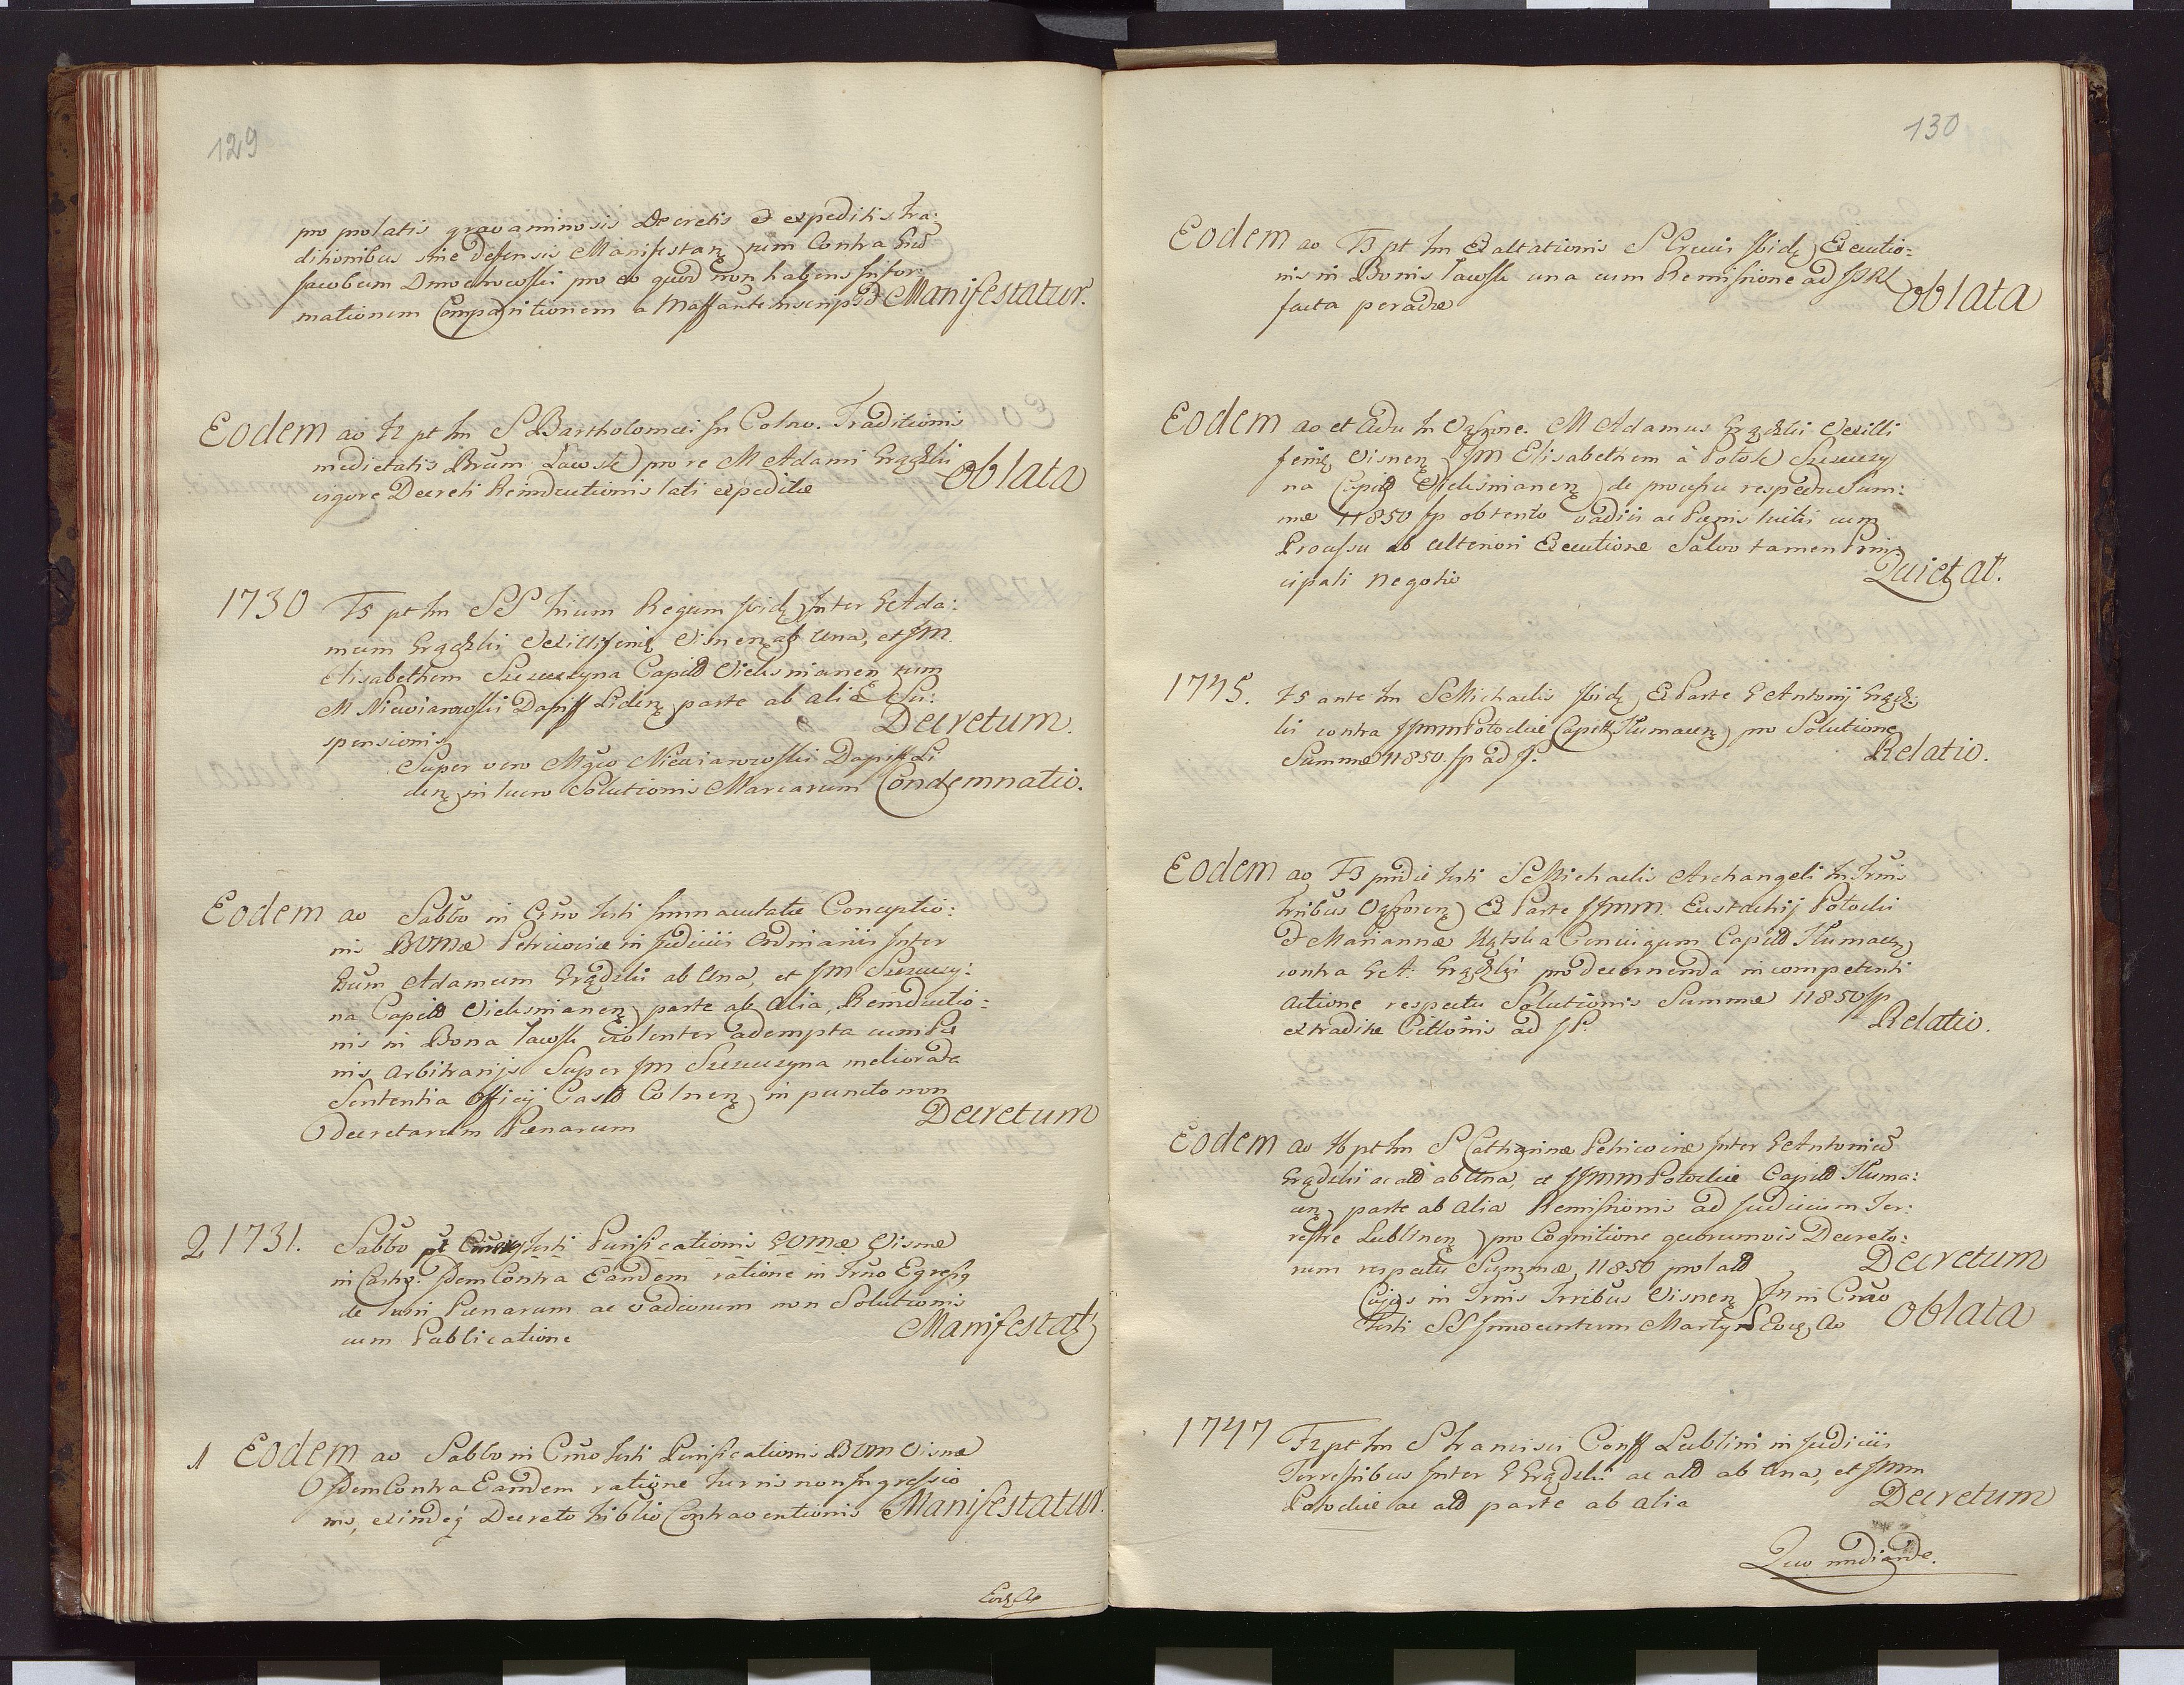 129
pro prolatis gravaminosis Decretis et expeditis tra:
ditionibus sine defensis Manifestan cum Contra Grū
Jacobum Dmochowski pro eo quod non habens infor:
mationem Comparitionem a Maff ante inscrips Manifestatur.
Eodem ao F2 pt fm S Bartholomei in Colno. Traditionis
medietatis Brum Ławsk pro re M Adami Grądzki
vigore Decreti Reinductionis lati expeditæ oblata
1730 F5 pt fm SS trium Regum ibid Inter G Ada:
mum Grądzki Vexilliferum Visnen ab Una, et JM
Elisabethem Szczuczyna Capit Vielusnianen cum
M Niewiarowski Dapiff Liden parte ab alia Su:
spensionis Decretum.
Super vero Mgco Niewiarowski Dapiff Li
den in lucro Solutionis Marcarum Condemnatio.
Eodem ao Sabbo in Crno festi Immaculatæ Conceptio:
nis BVMæ Petricoviæ in Judiciis Ordinariis Inter
Gum Adamum Grądzki ab Una, et JM Szczuczy:
na Capit Vielusnianen parte ab alia, Reinductio:
nis in Bona Ławsk violenter adempta cum Pæ
nis arbitrarijs Super JM Szczuczyna meliorata
Sententia Officij Cast Colnen in puncto non
decretarum Pænarum Decretum
2 1731. Sabbo pt festi Purificationis BVMæ Visnæ
in Castro. Idem Contra Eandem ratione in Trno Egressq
de Turri Pænarum ac vadiorum non Solutionis
cum Publicatione Manifestat
1 Eodem ao Sabbo in Crno festi Purificationis BVM Visnæ
Idem Contra Eandem ratione turris non Ingressio
nis, exindeq Decreto tribli Contraventionis Manifestatur.
Eod Ao
130
Eodem ao F3 pt fm Exaltationis S Crucis ibid Executio:
nis in Bonis Ławsk una cum Remissione ad
facta peractæ oblata
Eodem ao et Actu in Ostrone. M Adamus Grądzki Vexilli
fer Visnen JM Elisabethem à Potok Szczuczy
na Capit Vielusnianen de processu respectu Sum:
mæ 11850 fp obtento vadiis ac Pænis luitis cum
Processu ab ulteriori Executione Salvo tamen Prin
cipali negotio Quietat.
1745. F5 ante fm S Michaelis ibid Ex Parte G Antonij Grądz:
ki contra JJmm Potockie Capitt Tlumacen pro Solutione
Summæ 11850. fp ad
Relatio.
Eodem ao F3 pridie festi S Michaelis Archangeli in Trnis
tribus Ex Parte JJmm. Eustachij Potocki
et Mariannæ Kątska Coniugum Capit Tlumacen
contra G A. Grądzki pro decernenda incompetenti
actione respectu Solutionis Summæ 11850 fp
extraditæ Citt̄onis ad
Relatio.
Eodem ao F6 pt fm S Catharinæ Petricoviæ Inter G Antoniū
Grądzki ac ald ab Una, et JJmm Potockie Capit Tluma:
cen parte ab alia Remissionis ad Judicium Ter:
restre Lublinen pro Cognitione quorumvis Decreto:
rum respectu Summæ 11850 prolat Decretum
Cujus in Trnis Trribus Visnen in Crno
festi SS Innocentum Martyr Eod, Ao oblata
1747 F2 pt fm S Francisci Conff Lublini in Judiciis
Terrestribus Inter G Grądzki ac ald ab Una, et JJmm
Potockie ac ald parte ab alia Decretum